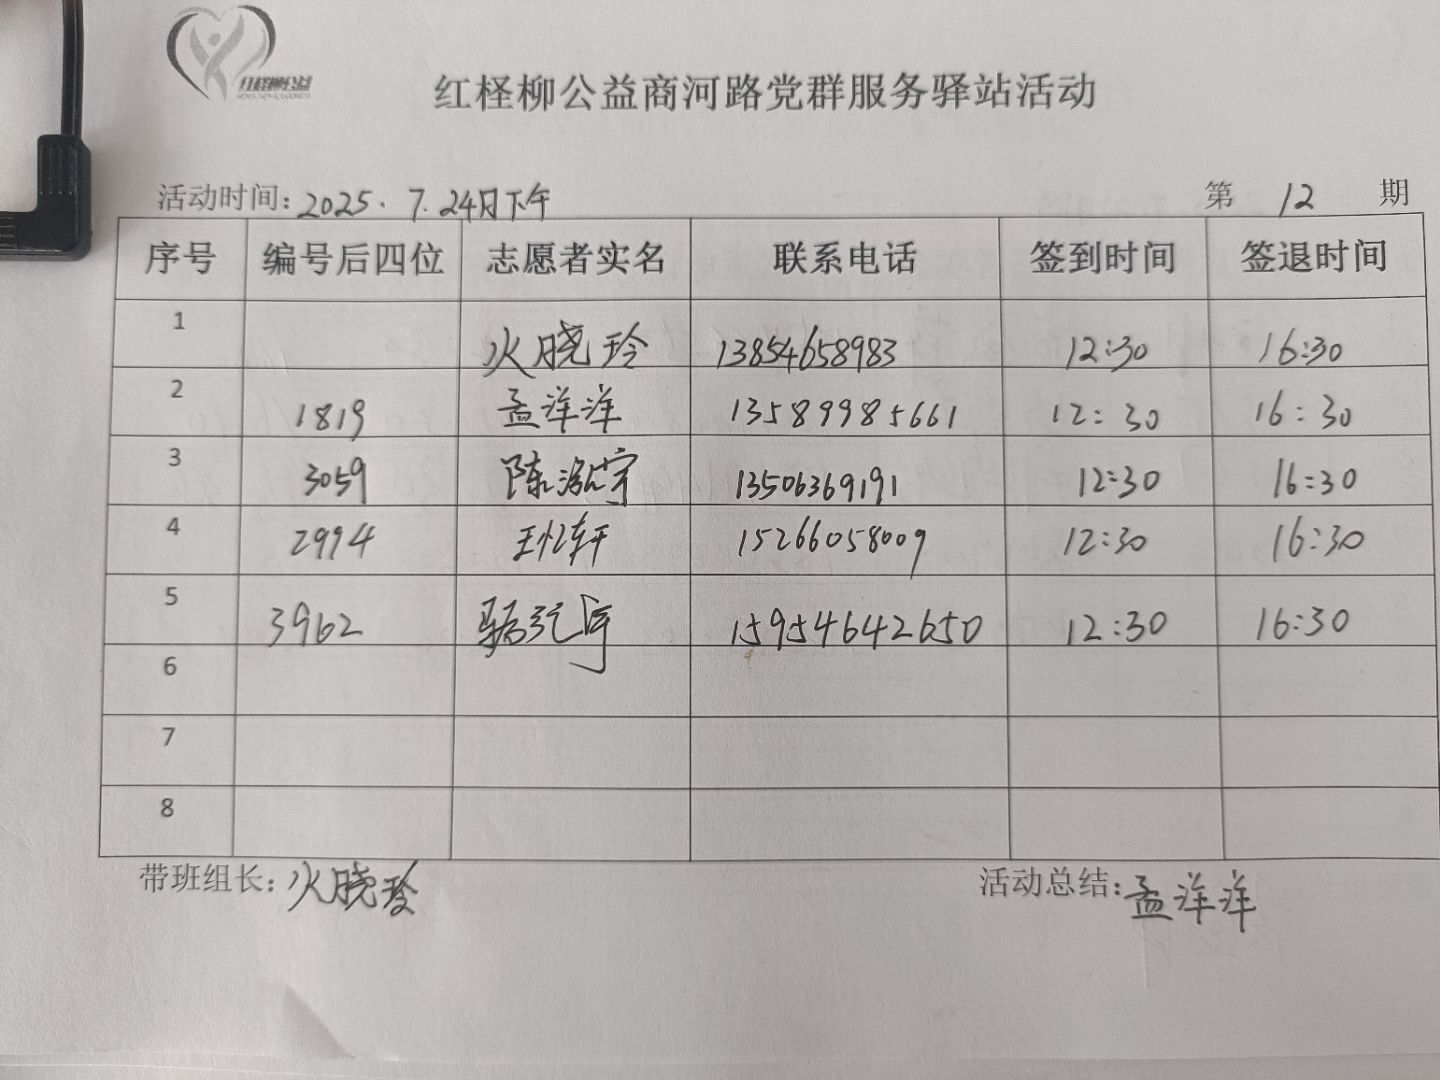 红柽柳公益
红柽柳公益商河路党群服务驿站活动
活动时间：2025.7.24日下午 第 12 期
序号 编号后四位 志愿者实名 联系电话 签到时间 签退时间
1 火晓玲 13854658983 12:30 16:30
2 1819 孟洋洋 13589985661 12:30 16:30
3 3059 陈泓宇 13506369191 12:30 16:30
4 2994 王忆轩 15266058009 12:30 16:30
5 3962 15954642650 12:30 16:30
6
7
8
带班组长：火晓玲 活动总结：孟洋洋